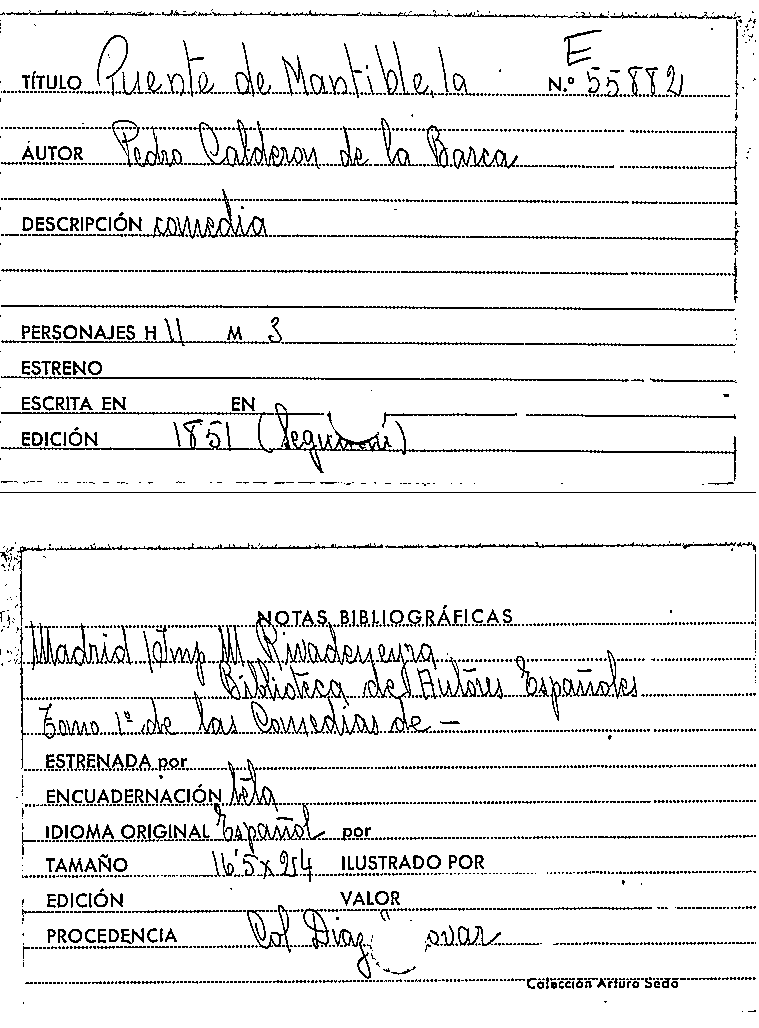 E
TÍTULO Puente de Mantible, la N.º 55882
AUTOR Pedro Calderon de la Barca
DESCRIPCIÓN comedia
PERSONAJES H 11 M 3
ESTRENO
ESCRITA EN EN
EDICIÓN 1851 (Segunda)
NOTAS BIBLIOGRÁFICAS
Madrid / Imp M. Rivadeneyra
Biblioteca de Autores Españoles
Tomo 1º de las Comedias de —
ESTRENADA por
ENCUADERNACIÓN tela
IDIOMA ORIGINAL Español por
TAMAÑO 16'5 x 24 ILUSTRADO POR
EDICIÓN VALOR
PROCEDENCIA Col Diaz
Colección Arturo Sedo